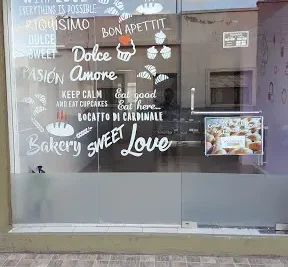 WITH LOVE
EVERYTHING IS POSSIBLE
RIQUISIMO
BON APETTIT
DOLCE
SWEET
Dolce
Amore
PASIÓN
KEEP CALM
AND EAT CUPCAKES
Eat good
Eat here...
BOCATTO DI CARDINALE
Bakery
SWEET
Love